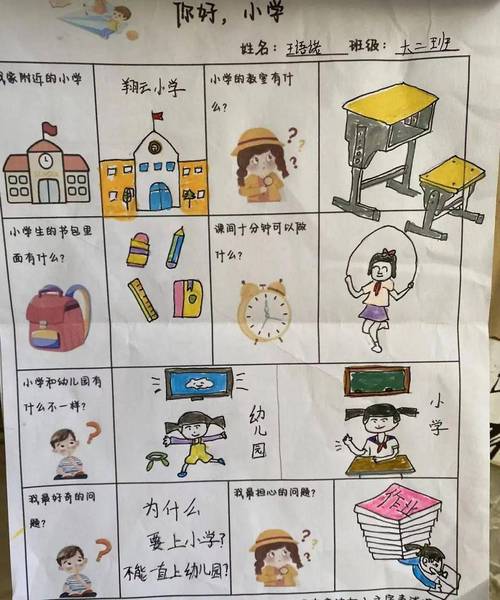 你好，小学
姓名：王语诺 班级：大二班
家附近的小学
翔云小学
小学的教室有什
么？
小学生的书包里
面有什么？
课间十分钟可以做
什么？
小学和幼儿园有
什么不一样？
幼儿园
小学
我最好奇的问
题？
为什么
要上小学？
不能一直上幼儿园？
我最担心的问题？
作业